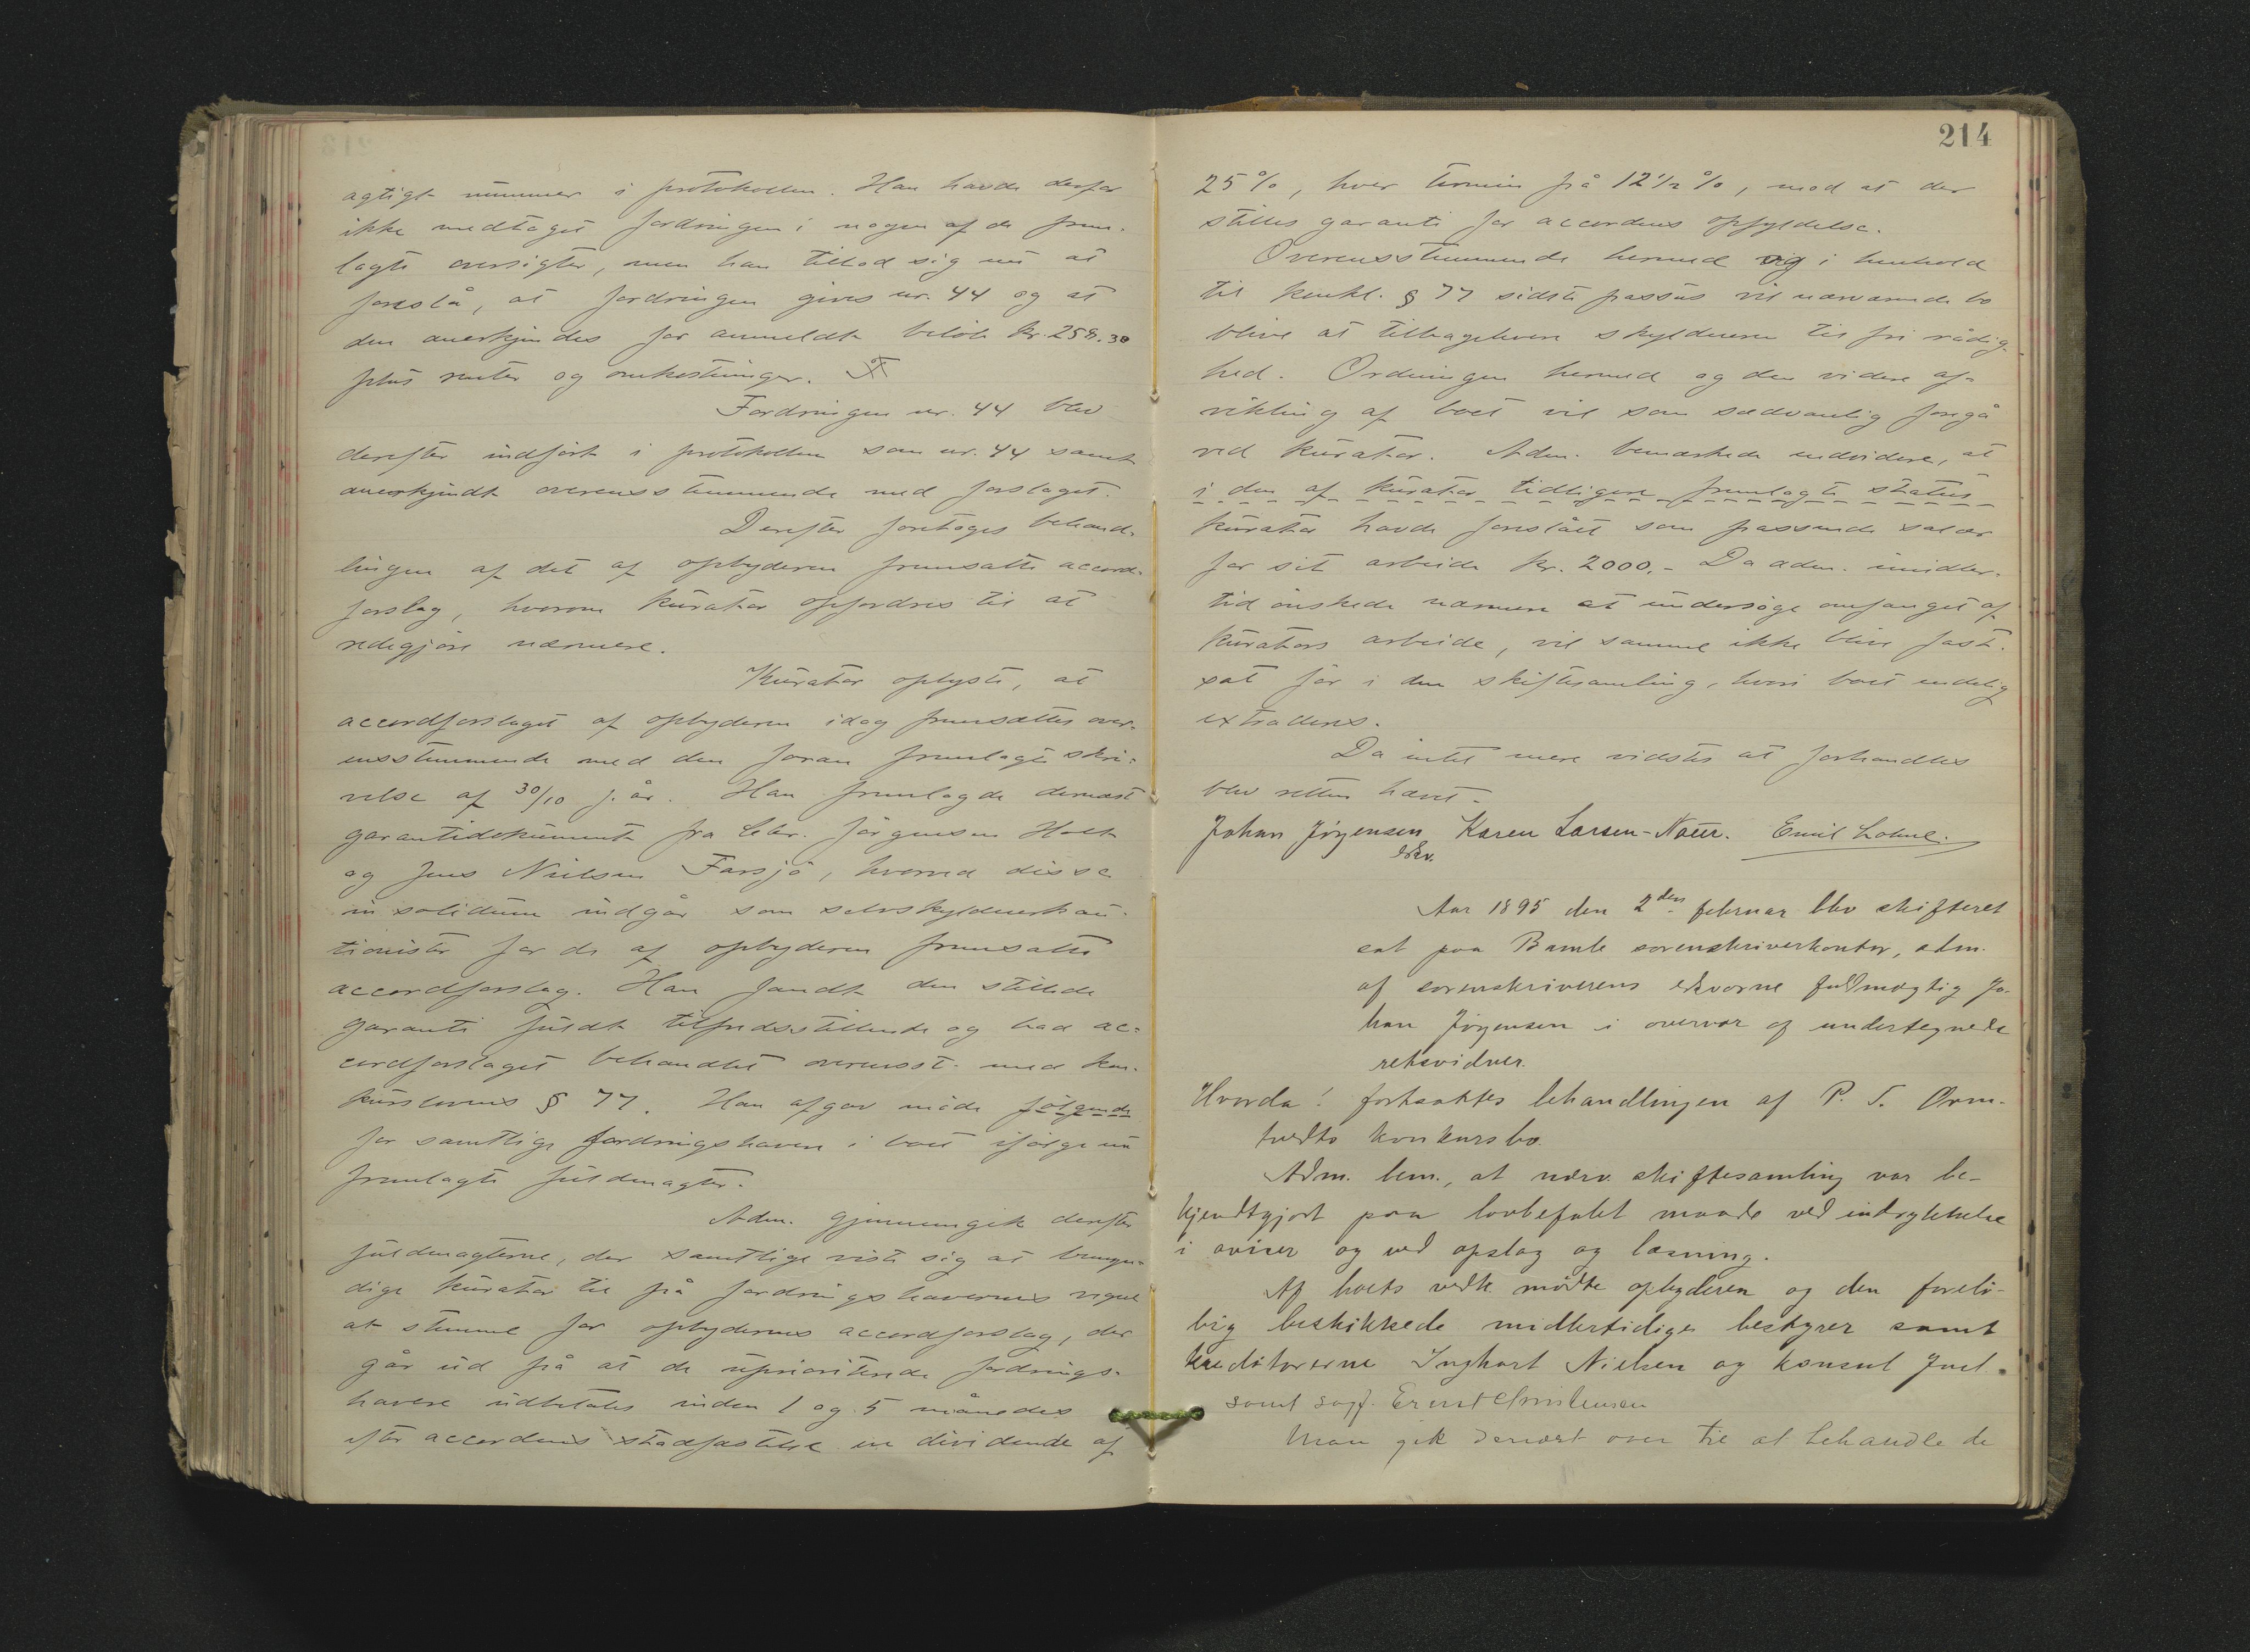 agtigt nummer i protokollen. Han havde derfor
ikke medtaget fordringen i nogen af de frem-
lagte oversigter, men han tillod sig nu at
foreslå, at fordringen gives nr. 44 og at
den anerkjendes for anmeldt beløb kr. 258.30
plus renter og omkostninger.
Fordringen nr. 44 blev
derefter indført i protokollen som nr. 44 samt
anerkjendt overensstemmende med forslaget.
Derefter foretoges behand-
lingen af det af opbyderen fremsatte accord-
forslag, hvorom kurator opfordres til at
redegjøre nærmere.
Kurator oplyste, at
accordforslaget af opbyderen idag fremsættes over-
ensstemmende med den foran fremlagte skri-
velse af 30/10 f. år. Han fremlagde dernæst
garantidokument fra Jørgensen Holt
og Jens Nielsen Farsjø, hvorved disse
in solidum indgår som selvskyldnerkau-
tionister for de af opbyderen fremsatte
accordforslag. Han fandt den stillede
garanti fuldt tilfredsstillende og bad ac-
cordforslaget behandlet overensst. med kon-
kurslovens § 77. Han afgav møde følgende
for samtlige fordringshavere i boet ifølge nu
fremlagte fuldmagter.
Adm. gjennemgik derefter
fuldmagterne, der samtlige viste sig at bemyn-
dige kurator til på fordringshavernes vegne
at stemme for opbyderens accordforslag, der
går ud på at de uprioriterede fordrings-
havere udbetales inden 1 og 5 måneder
efter accordens stadfæstelse en dividende af
214
25 %, hver termin på 12 1/2 %, mod at der
stilles garanti for accordens opfyldelse.
Overensstemmende hermed og i henhold
til konkl. § 77 sidste passus vil nærværende bo
blive at tilbagelevere skyldneren til fri rådig-
hed. Ordningen hermed og den videre af-
vikling af boet vil som sædvanlig foregå
ved kurator. Adm. bemærkede endvidere, at
i den af kurator tidligere fremlagte status
kurator havde foreslået som passende salær
for sit arbeide kr. 2000.- Da adm. imidler-
tid ønskede nærmere at undersøge omfanget af
kurators arbeide, vil samme ikke blive fast-
sat før i den skiftesamling, hvori boet endelig
extraderes.
Da intet mere vidstes at forhandles
blev retten hævet.
Johan Jørgensen Karen Larsen-Naur. Emil Lohne.
edsv.
Aar 1895 den 2den februar blev skifteret
sat paa Bamle sorenskriverkontor, adm.
af sorenskriverens edsvorne fuldmægtig Jo-
han Jørgensen i overvær af undertegnede
retsvidner.
Hvorda! fortsattes behandlingen af P. T. Ørm-
tvedts konkursbo.
Adm. bem., at nærv. skiftesamling var be-
kjendtgjort paa lovbefalet maade ved indrykkelse
i aviser og ved opslag og læsning.
Af boets vedk. mødte opbyderen og den forelø-
big beskikkede midlertidige bestyrer samt
kreditorerne Inghart Nielsen og konsul Juel.
samt sagf. Ernst Christensen
Man gik dernæst over til at behandle de